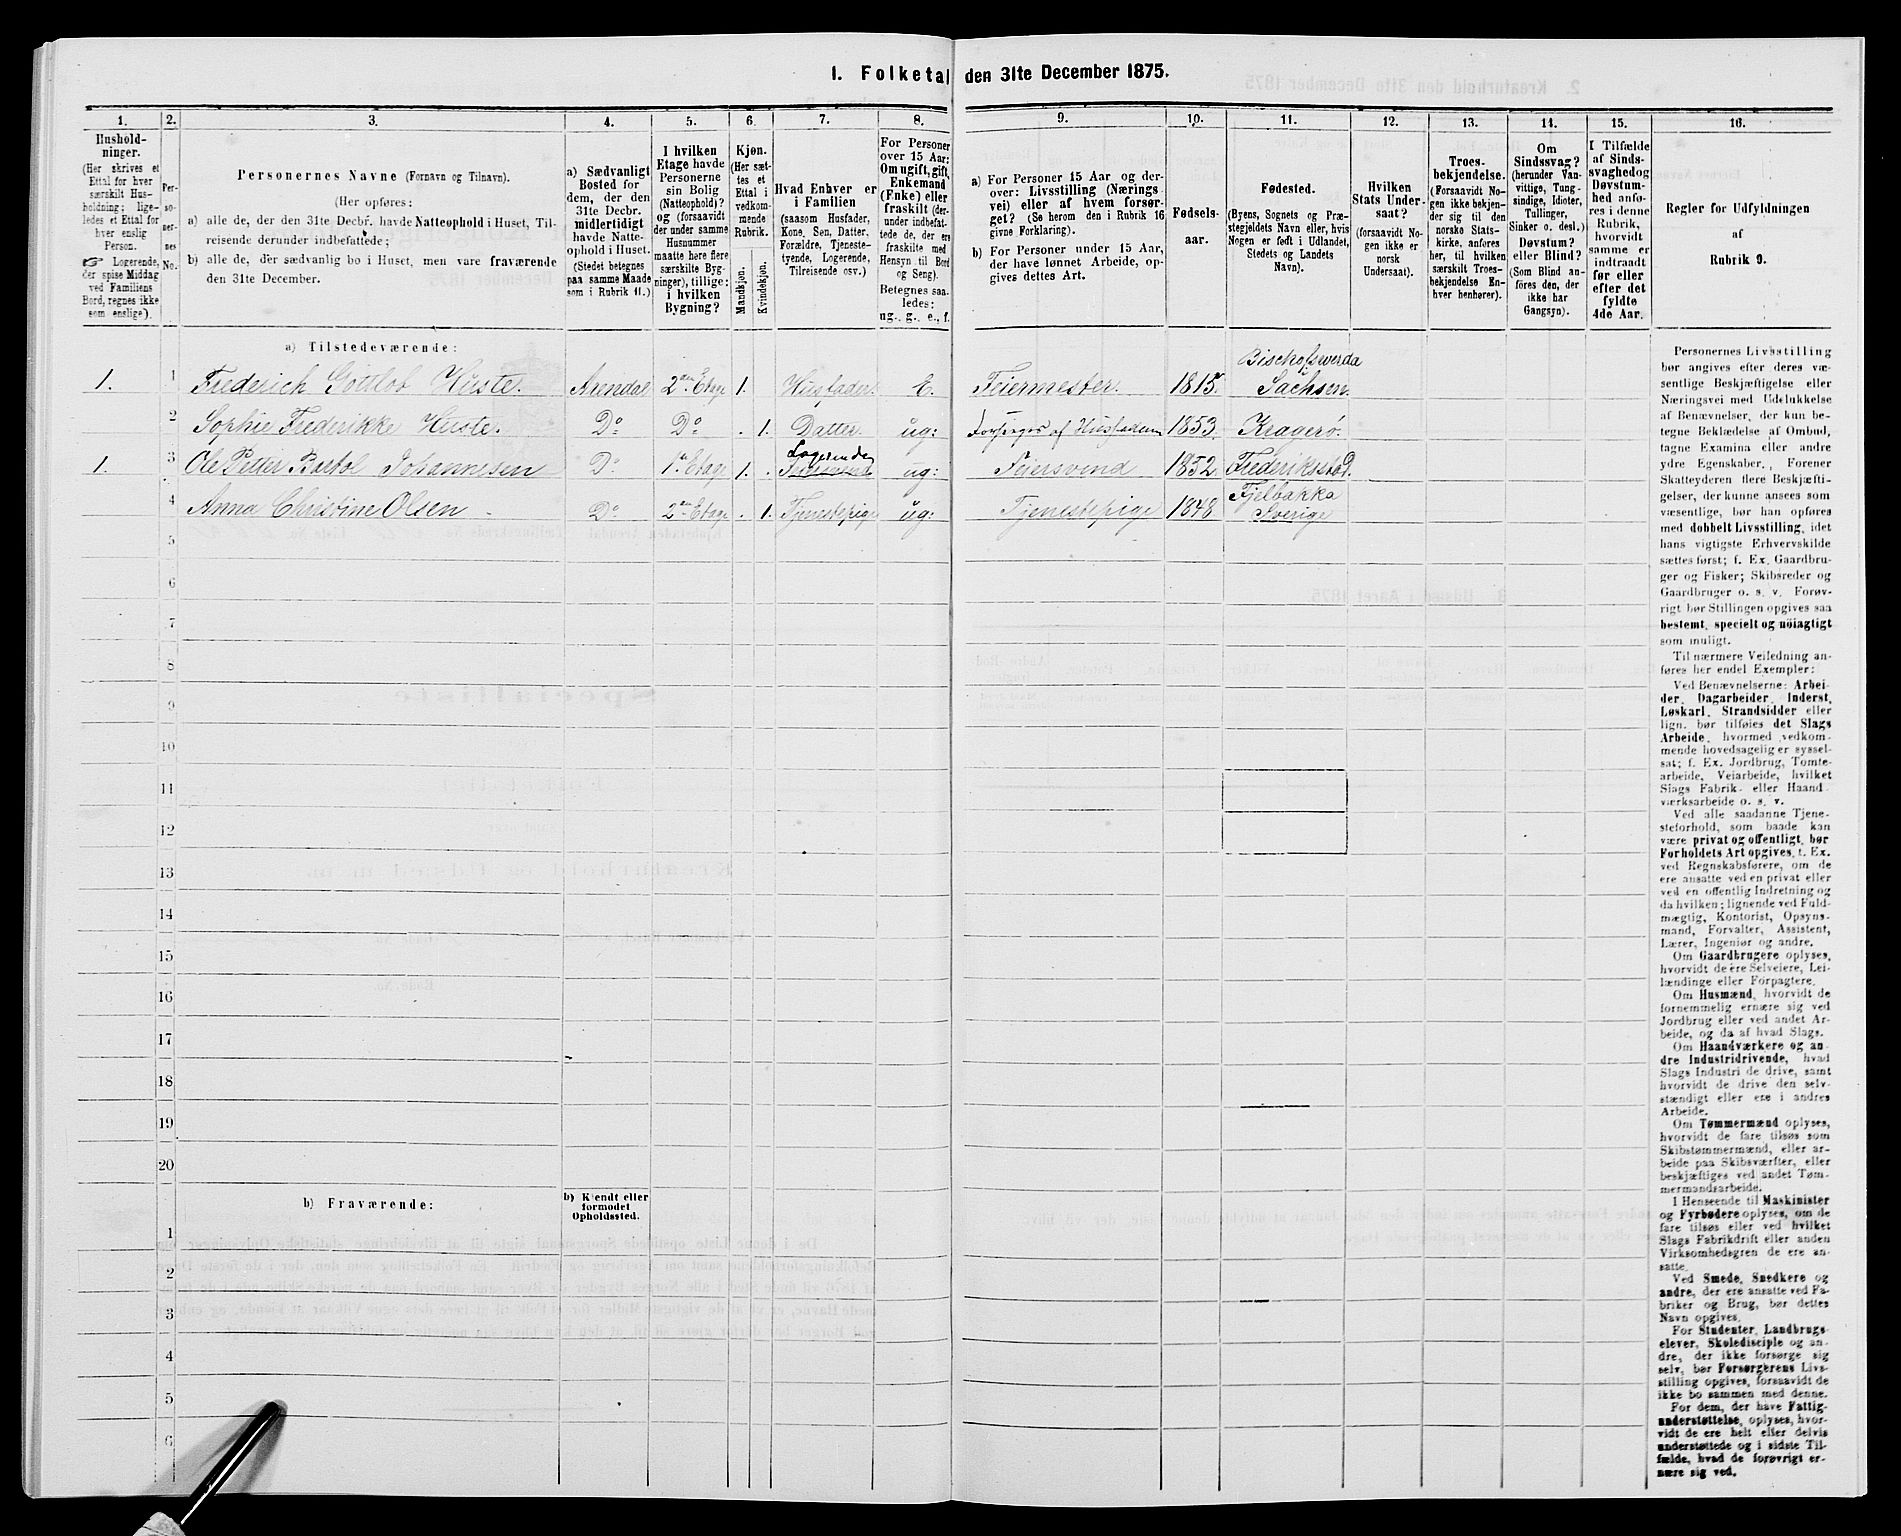 1. Folketal den 31te December 1875.
1. 2. 3. 4. 5. 6. 7. 8. 9. 10. 11. 12. 13. 14. 15. 16.
Hushold-
ninger.
(Her skrives et
Ettal for hver
særskilt Hus-
holdning; lige-
ledes et Ettal for
hver enslig
Person.
☞ Logerende,
der spise Middag
ved Familiens
Bord, regnes ikke
som enslige).
Per-
so-
ner-
nes
No.
Personernes Navne (Fornavn og Tilnavn).
(Her opføres:
a) alle de, der den 31te Decbr. havde Natteophold i Huset, Til-
reisende derunder indbefattede;
b) alle de, der sædvanlig bo i Huset, men vare fraværende
den 31te December.
a) Sædvanligt
Bosted for
dem, der den
31te Decbr.
midlertidigt
havde Natte-
ophold i Huset.
(Stedet betegnes
paa samme Maade
som i Rubrik 11.)
I hvilken
Etage havde
Personerne
sin Bolig
(Natteophold)?
og (forsaavidt
der under samme
Husnummer
maatte høre flere
særskilte Byg-
ninger), tillige:
i hvilken
Bygning?
Kjøn.
(Her sæt-
tes et
Ettal i
vedkom-
mende
Rubrik.
Mandkjøn.
Kvindekjøn.
Hvad Enhver er
i Familien
(saasom Husfader,
Kone, Søn, Datter,
Forældre, Tjeneste-
tyende, Logerende,
Tilreisende osv.)
For Personer
over 15 Aar:
Om ugift, gift,
Enkemand
(Enke) eller
fraskilt (der-
under indbefat-
tede de, der ere
fraskilte med
Hensyn til Bord
og Seng).
Betegnes saa-
ledes:
ug., g., e., f.
a) For Personer 15 Aar og der-
over: Livsstilling (Nærings
vei) eller af hvem forsør-
get? (Se herom den i Rubrik 16
givne Forklaring).
b) For Personer under 15 Aar,
der have lønnet Arbeide, op-
gives dettes Art.
Fødsels-
aar.
Fødested.
(Byens, Sognets og Præ-
stegjeldets Navn eller, hvis
Nogen er født i Udlandet,
Stedets og Landets
Navn).
Hvilken
Stats Under-
saat?
(forsaavidt No-
gen ikke er
norsk
Undersaat).
Troes-
bekjendelse.
(Forsaavidt No-
gen ikke bekjen-
der sig til den
norske Stats-
kirke, anføres
her, til hvilken
særskilt Troes-
bekjendelse En-
hver henhører).
Om
Sindssvag?
(herunder Van-
vittige, Tung-
sindige, Idioter,
Tullinger,
Sinker o. desl.)
Døvstum?
eller Blind?
(Som Blind an-
føres den, der
ikke har
Gangsyn).
I Tilfælde
af Sinds-
svaghed og
Døvstum-
hed anfø-
res i denne
Rubrik,
hvorvidt
samme er
indtraadt
før eller
efter det
fyldte
4de Aar.
Regler for Udfyldningen
af
Rubrik 9.
a) Tilstedeværende:
1. 1 Frederich Gottlob Huste. Arendal 2den Etage 1. Husfader. E. Feiermester. 1815. Bischofswerda Sachsen.
2 Sophie Frederikke Huste. Do Do . 1. Datter. ug: Forsørges af Husfaderen 1853. Kragerø.
1. 3 Ole Petter Bartol Johannesen Do 1ste Etage 1. . Logerende ug: Feiersvend 1852. Frederikstad.
4 Anna Christine Olsen Do 2den Etage . 1. Tjenestepige ug: Tjenestepige 1848 Fjelbakka Sverige
5
6
7
8
9
10
11
12
13
14
15
16
17
18
19
20
b) Fraværende:
b) Kjendt eller
formodet
Opholdssted.
1
2
3
4
5
6
Personernes Livsstilling
bør angives efter deres væ-
sentlige Beskjæftigelse eller
Næringsvei med Udelukkelse
af Benævnelser, der kun be-
tegne Beklædelse af Ombud,
tagne Examina eller andre
ydre Egenskaber. Forener
Skatteyderen flere Beskjæfti-
gelser, der kunne ansees som
væsentlige, bør han opføres
med dobbelt Livsstilling, idet
hans vigtigste Erhvervskilde
sættes først; f. Ex. Gaardbru-
ger og Fisker; Skibsreder og
Gaardbruger o. s. v. Forøv-
rigt bør Stillingen opgives saa
bestemt, specielt og nøiagtigt
som muligt.
Til nærmere Veiledning an-
føres her endel Exempler:
Ved Benævnelserne: Arbei-
der, Dagarbeider, Inderst,
Løskarl, Strandsidder eller
lign. bør tilføies det Slags
Arbeide, hvormed vedkom-
mende hovedsagelig er syssel-
sat; f. Ex. Jordbrug, Tomte-
arbeide, Veiarbeide, hvilket
Slags Fabrik- eller Haand
værksarbeide o. s. v.
Ved alle saadanne Tjene-
steforhold, som baade kan
være privat og offentligt, bør
Forholdets Art opgives, t. Ex.
ved Regnskabsførere, om de
ere ansatte ved en privat eller
ved en offentlig Indretning og
da hvilken; lignende ved Fuld-
mægtig, Kontorist, Opsyns-
mand, Forvalter, Assistent,
Lærer, Ingeniør og andre.
Om Gaardbrugere oplyses,
hvorvidt de ere Selveiere, Lei-
lændinge eller Forpagtere.
Om Husmænd, hvorvidt de
fornemmelig ernære sig ved
Jordbrug eller ved andet Ar-
beide, og da af hvad Slags.
Om Haandværkere og an-
dre Industridrivende, hvad
Slags Industri de drive, samt
hvorvidt de drive den selv-
stændigt eller ere i andres
Arbeide.
Om Tømmermænd oplyses,
hvorvidt de fare tilsøs som
Skibstømmermænd, eller ar-
beide paa Skibsværfter, eller
beskjæftiges ved andet Tøm-
mermandsarbeide.
I Henseende til Maskinister
og Fyrbødere oplyses, om de
fare tilsøs eller ved hvilket
Slags Fabrikdrift eller anden
Virksomhedsgren de ere an-
satte.
Ved Smede, Snedkere og
andre, der ere ansatte ved Fa-
briker og Brug, bør dettes
Navn opgives.
For Studenter, Landbrugs-
elever, Skoledisciple og an-
dre, der ikke forsørge sig
selv, bør Forsørgerens Livs-
stilling opgives, forsaavidt de
ikke bo sammen med denne.
For dem, der have Fattig-
understøttelse, oplyses, hvor-
vidt de ere helt eller delvis
understøttede og i sidste Til-
fælde, hvad de forøvrigt er-
nære sig ved.